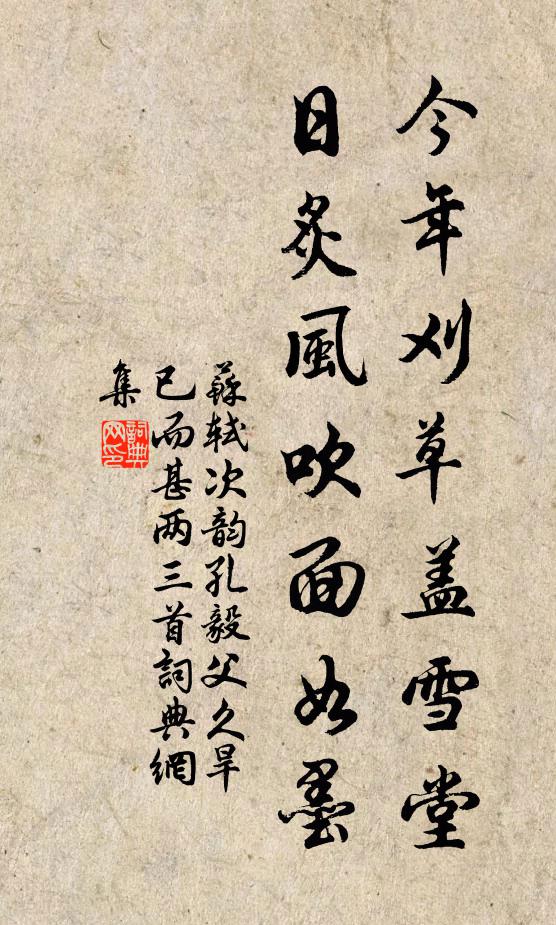 今年刈草盖雪堂
日炙風吹面如墨
蘇轼次韵孔毅父久旱
已而甚两三首詞典網
集
詞典
网印